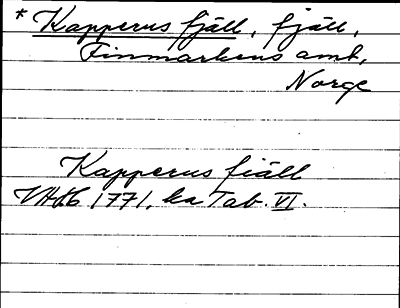 * Kapperus fjäll, fjäll,
Finmarkens amt,
Norge
Kapperus fiäll
VAH 1771, ka Tab. VI.